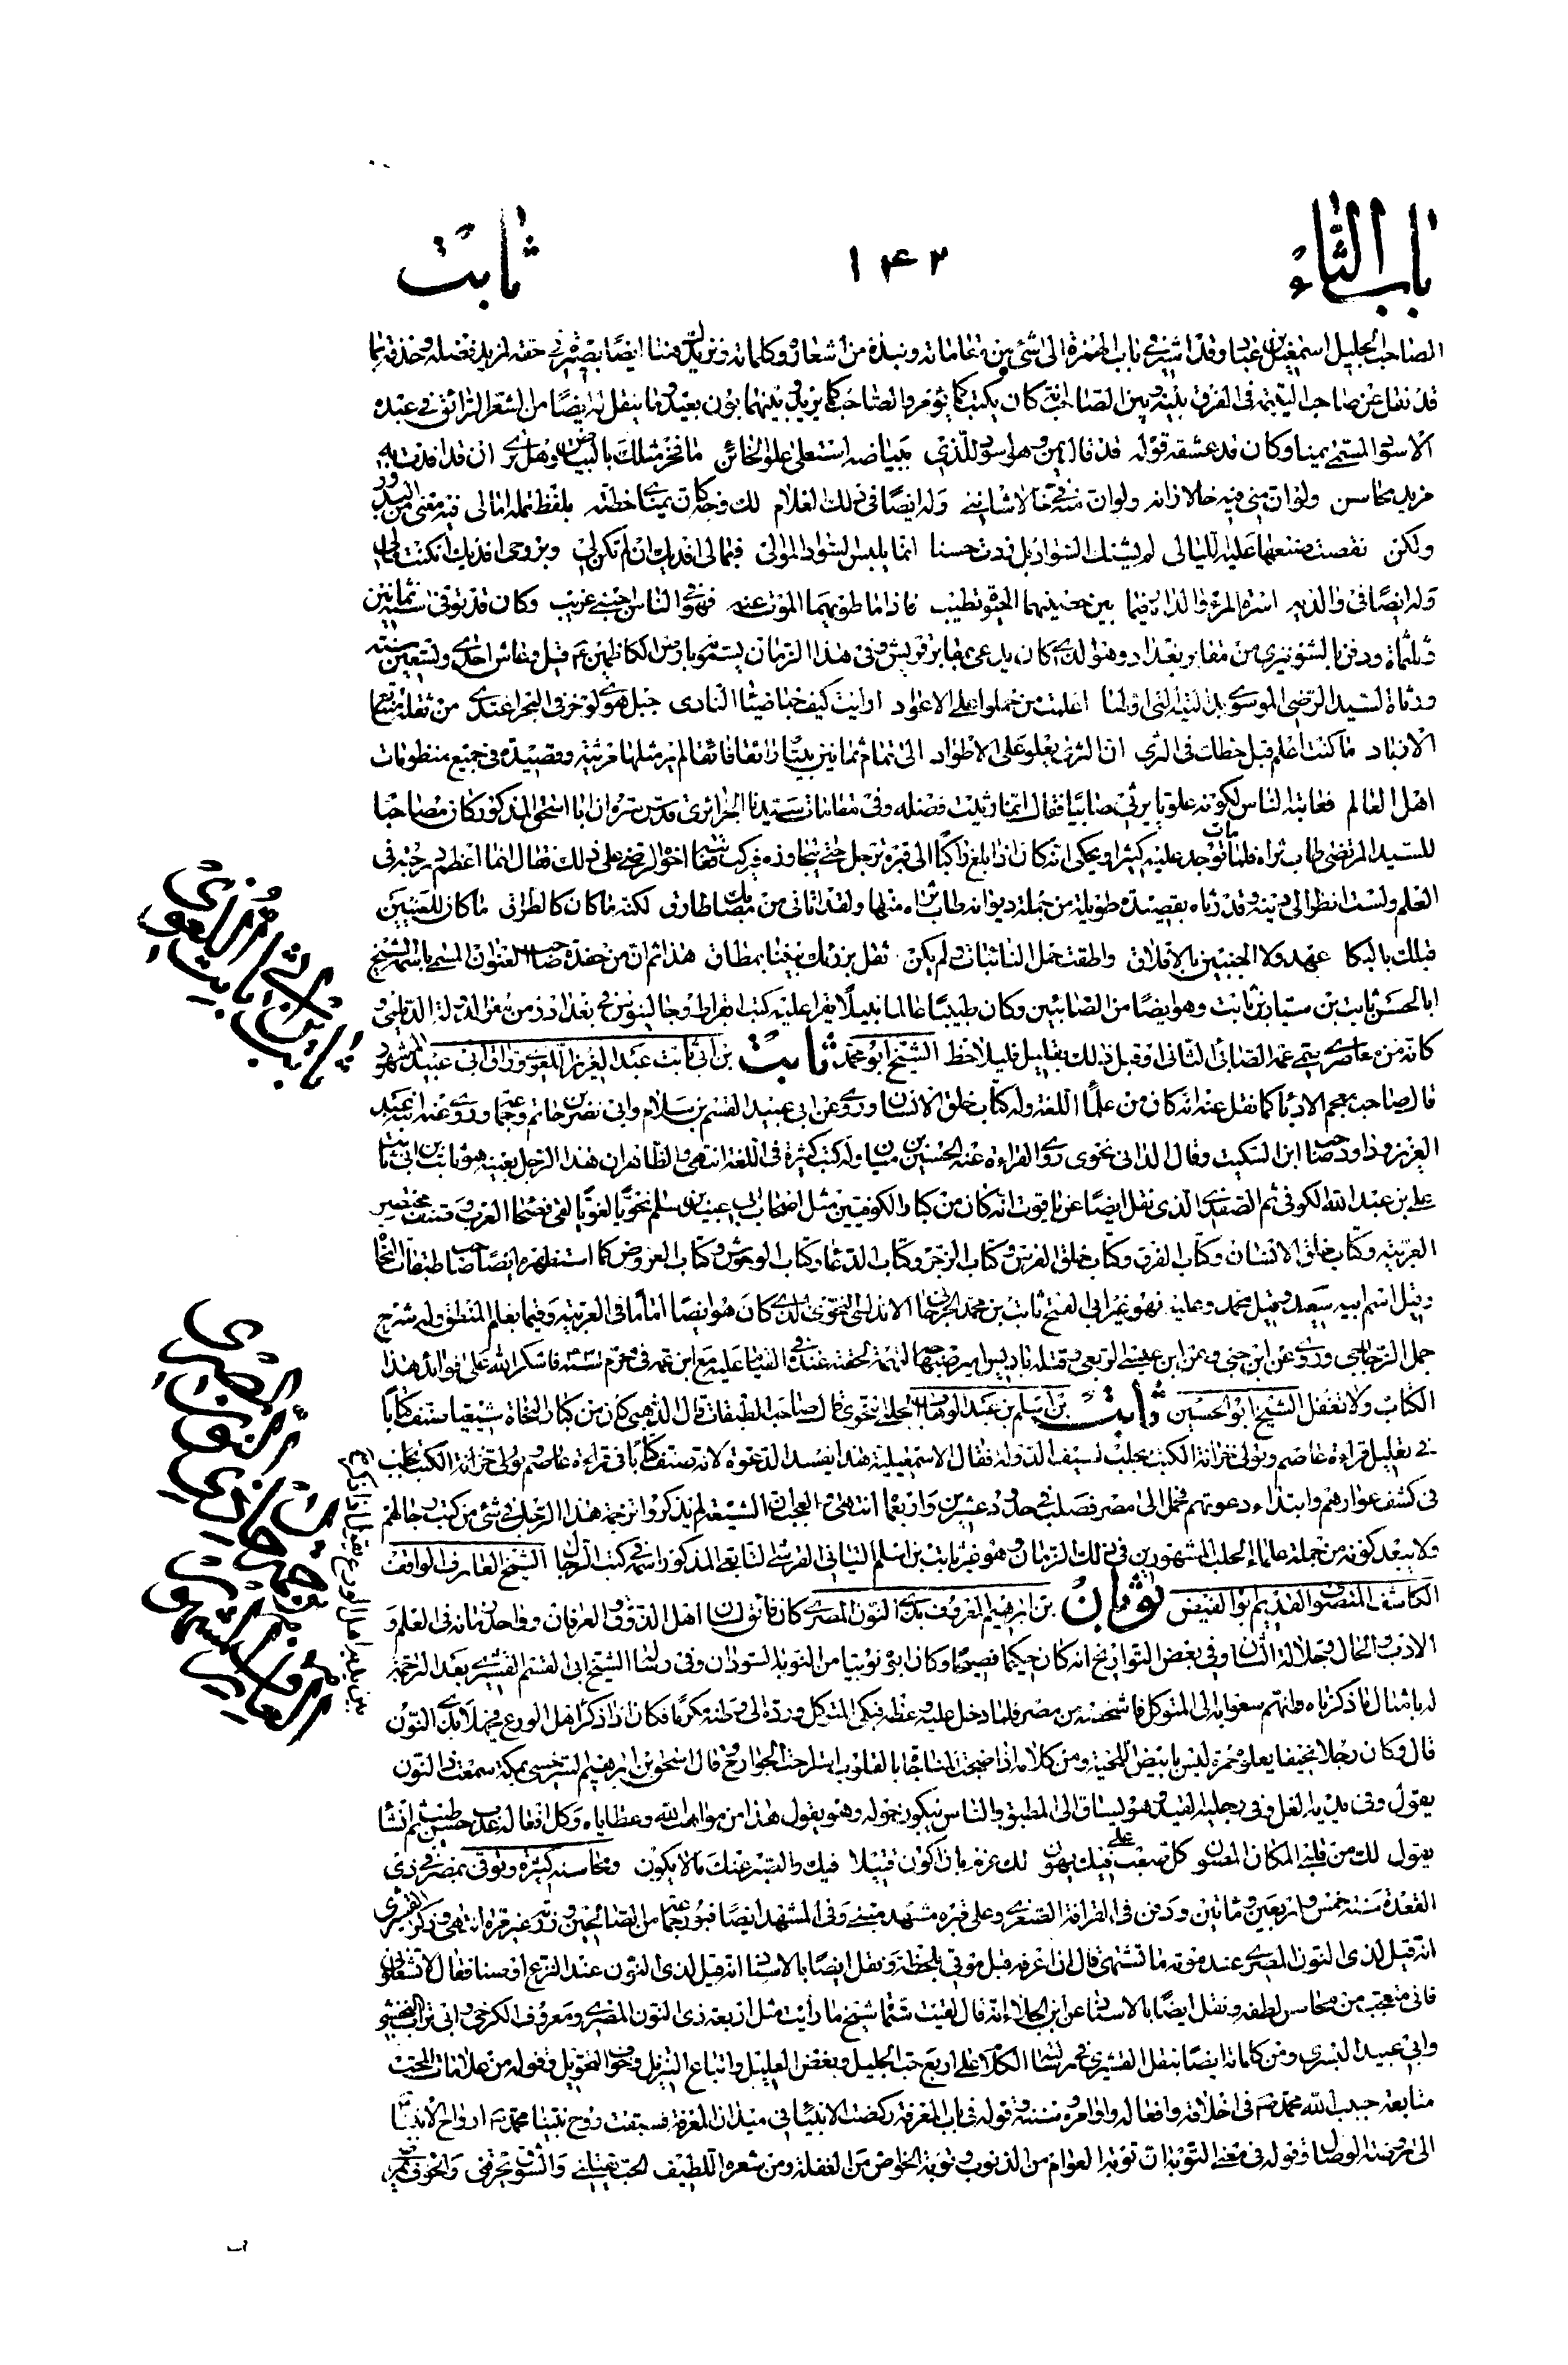 باب الثاء
١٤٢
ثابت
الصاحب الجليل اسمعيل بن عباد وقد اشير في باب الهمزة الى شئ من مقاماته ونبذة من اشعاره وكلماته ونزيدك هنا ايضا بصيرة في حقه لمزيد فضله وحذقه بما
قد نقل عن صاحب اليتيمة في الفرق بينه وبين الصاحب انه كان يكتب كما يؤمر والصاحب كما يريد وبينهما بون بعيد ومما ينقل له ايضا من الشعر الرائق في عبده
الاسود المسمى يمنا وكان قد عشقه قوله قد قال يمن وهو اسود للذي ببياضه استعلى علو الخائن ما فخر وجهك بالبياض وهل ترى ان قد افدت به
مزيد محاسن ولو ان مني فيه خالا زانه ولو ان منه في خالا شانني وله ايضا في ذلك الغلام لك وجه كان يمناي خطته بلفظ تمله امالي فيه معنى من البدور
ولكن نفضت صبغها عليه الليالي لم يشنك السواد بل زدت حسنا انما يلبس السواد الموالي فبمالي افديك ان لم تكن لي وبروحي افديك ان كنت مالي
وله ايضا في والديه اسرة المرء والداه فيما بين حضنيهما الحيوة تطيب فاذا ما طويهما الموت عنه فهو في الناس اجنبي غريب وكان قد توفى سنة ثمانين
وثلثمأة ودفن بالشونيزي من مقابر بغداد وهو الذي كان يدعى بمقابر قريش وفي هذا الزمان يسمى بارض الكاظمين ع قيل وعاش احدى وتسعين سنة
ورثاه السيد الرضي الموسوي بداليته التي اولها اعلمت من حملوا على الاعواد ارايت كيف خبا ضياء النادى جبل هوى لو خر في البحر اغتدى من ثقله متتابع
الازباد ما كنت اعلم قبل حطك في الثرى ان الثرى يعلو على الاطواد الى تمام ثمانين بيتا رائقا فائقا لم ير مثلها مرثية وقصيدة في جميع منظومات
اهل العالم فعاتبه الناس لكونه علويا يرثي صابيا فقال انما رثيت فضله وفي مقامات سيدنا الجزائري قدس سره ان ابا اسحق المذكور كان مصاحبا
للسيد المرتضى طاب ثراه فلما مات توجد عليه كثيرا ويحكى انه كان اذا بلغ راكبا الى قبره ترجل حتى يتجاوزه فيركب فعابه اخوه الرضي على ذلك فقال انما اعظم درجته في
العلم ولست انظر الى دينه وقد رثاه بقصيدة طويلة من جملة ديوانه طاب ثراه منها ولقد اتاني من مصابك طارق لكنه ما كان كالطراق ما كان للعينين
قبلك بالبكا عهد ولا الجنبين بالاقلاق واطقت حمل النائبات ولم يكن ثقل برزئك بيننا بمطاق هذا ثم ان من حفدة صاحب العنوان المسمى باسمه الشيخ
ابا الحسن ثابت بن سنان بن ثابت وهو ايضا من الصابئين وكان طبيبا عالما نبيلا يقرا عليه كتب ابقراط وجالينوس في بغداد زمن معز الدولة الديلمي و
كانه من معاصري سميه عم الصابي الثاني او قبل ذلك بقليل فليلاحظ الشيخ ابو محمد ثابت بن ابي ثابت عبد العزيز اللغوي وراق ابي عبيد المشهور
قال صاحب معجم الادباء كما نقل عنه انه كان من علماء اللغة وله كتاب خلق الانسان وروى عن ابي عبيد القسم بن سلام وابي نصر بن حاتم وجماعة وروى عنه ابنه عبد
العزيز وداود صاحب ابن السكيت وقال الداني نحوى روى القراءة عن الحسين بن ميان وله كتب كثيرة في اللغة انتهى والظاهر ان هذا الرجل بعينه هو ثابت بن ابي ثابت
علي بن عبد الله الكوفي ثم الصفدي الذي نقل ايضا عن ياقوت انه كان من كبار الكوفيين مثل اصحاب ابي عبيد بن سلم نحويا لغويا لقى فصحاء العرب وصنف مختصر
العربية وكتاب خلق الانسان وكتاب الفرق وكتاب خلق الفرس وكتاب الزجر وكتاب الدعاء وكتاب الوحوش وكتاب العروض كما استظهره ايضا صاحب طبقات النحاة
وقيل اسم ابيه سعيد وقيل محمد وعليه فهو غير ابي الفتح ثابت بن محمد الجرجاني الاندلسي النحوي الذي كان هو ايضا اماما في العربية وقيما بعلم المنطق وله شرح
جمل الزجاجي وروى عن ابن جني وعن ابن عيسى الربعي وقتله باديس امير صنهاجة لتهمة لحقته عنده في القيام عليه مع ابن عمه في محرم سنة فاشكر الله على فوائد هذا
الكتاب ولا تغفل الشيخ ابو الحسين ثابت بن اسلم بن عبد الوهاب الحلبي النحوي قال صاحب الطبقات قال الذهبي كان من كبار النحاة شيعيا صنف كتابا
في تعليل قراءة عاصم وتولى خزانة الكتب بحلب لسيف الدولة فقال الاسمعيلية هذا يفسد الدعوة لانه صنف كتابا في قراءة عاصم تولى خزانة الكتب بحلب
في كشف عوارهم وابتداء دعوتهم فحمل الى مصر فصلب في حدود عشرين واربعمأة انتهى والعجب ان الشيعة لم يذكروا ترجمة هذا الرجل في شئ من كتب رجالهم
ولا يبعد كونه من جملة علماء الحلب المشهورين في ذلك الزمان وهو غير ثابت بن اسلم البناني القرشي التابعي المذكور اسمه في كتب الرجال الشيخ العارف الواقف
الكاشف المتصوف القديم ابو الفيض ثوبان بن ابرهيم المعروف بذي النون المصري كان فائق لسان اهل الذوق والعرفان وواحد زمانه في العلم و
الادب والحال وجلالة الشأن وفي بعض التواريخ انه كان حكيما فصيحا وكان ابوه نوبيا من النوبة السودان وفي رسالة الشيخ ابي القسم القشيري بعد الترجمة
له بامثال ما ذكرناه وانهم سعوا به الى المتوكل فاشخصه من مصر فلما دخل عليه وعظه فبكى المتوكل ورده الى وطنه مكرما فكان اذا ذكر اهل الورع فحيهلا بذي النون
قال وكان رجلا نحيفا يعلوه حمرة ليس بابيض اللحية ومن كلامه اذا صحت المناجاة بالقلوب استراحت الجوارح قال اسحق بن ابرهيم السرخسي بمكة سمعت ذا النون
يقول وفي يديه الغل وفي رجليه القيد وهو يساق الى المطبق والناس يبكون حوله وهو يقول هذا من مواهب الله وعطاياه وكل افعاله عذب حسن طيب ثم انشا
يقول لك من قلبي المكان المصون كل صعب علي فيك يهون لك عزم بان اكون قتيلا فيك والصبر عنك ما لا يكون ومحاسنه كثيرة وتوفى بمصر في ذي
القعدة سنة خمس واربعين ومأتين ودفن في القرافة الصغرى وعلى قبره مشهد مبني وفي المشهد ايضا قبور جماعة من الصالحين وزرته غير مرة انتهى وذكر القشيري
انه قيل لذي النون المصري عند موته ما تشتهى قال ان اعرفه قبل موتي بلحظة ونقل ايضا بالاسناد انه قيل لذي النون عند النزع اوصنا فقال لا تشغلوني
فاني متعجب من محاسن لطفه ونقل ايضا بالاسناد عن ابن الجلاء انه قال لقيت ستمأة شيخ ما رايت مثل اربعة ذي النون المصري ومعروف الكرخي وابي تراب النخشبي
وابي عبيد البسري ومن كلماته ايضا بنقل القشيري في رسالته الكلام على اربع حب الجليل وبغض القليل واتباع التنزيل وخوف التحويل وقوله من علامات المحب
متابعة حبيب الله محمد ص في اخلاقه وافعاله واوامره وسننه وقوله في باب المعرفة ركضت ارواح الانبياء في ميدان المعرفة فسبقت روح نبينا محمد ص ارواح الانبياء
الى روضة الوصال وقوله في معنى التوبة ان توبة العوام من الذنوب وتوبة الخواص من الغفلة ومن شعره اللطيف الحب
ثابت بن ابي ثابت اللغوي